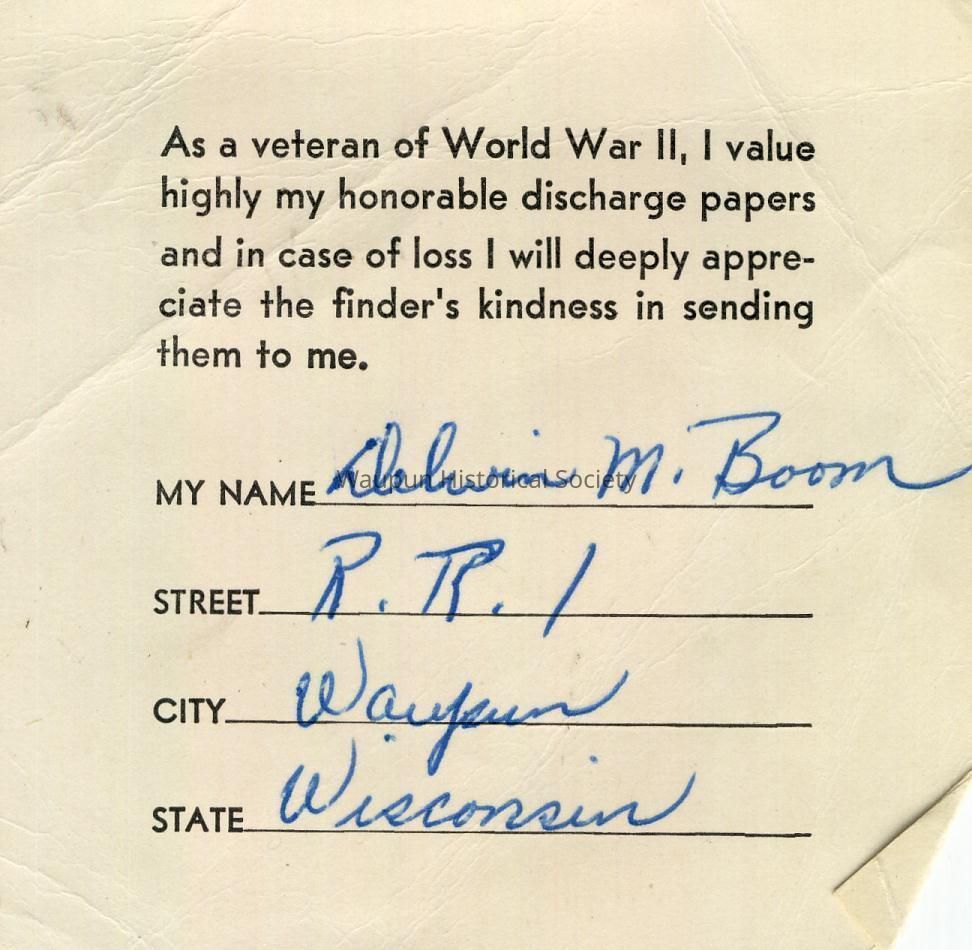 As a veteran of World War II, I value
highly my honorable discharge papers
and in case of loss I will deeply appre-
ciate the finder's kindness in sending
them to me.
MY NAME Delvin M. Boom
Waupun Historical Society
STREET R. R. 1
CITY Waupun
STATE Wisconsin